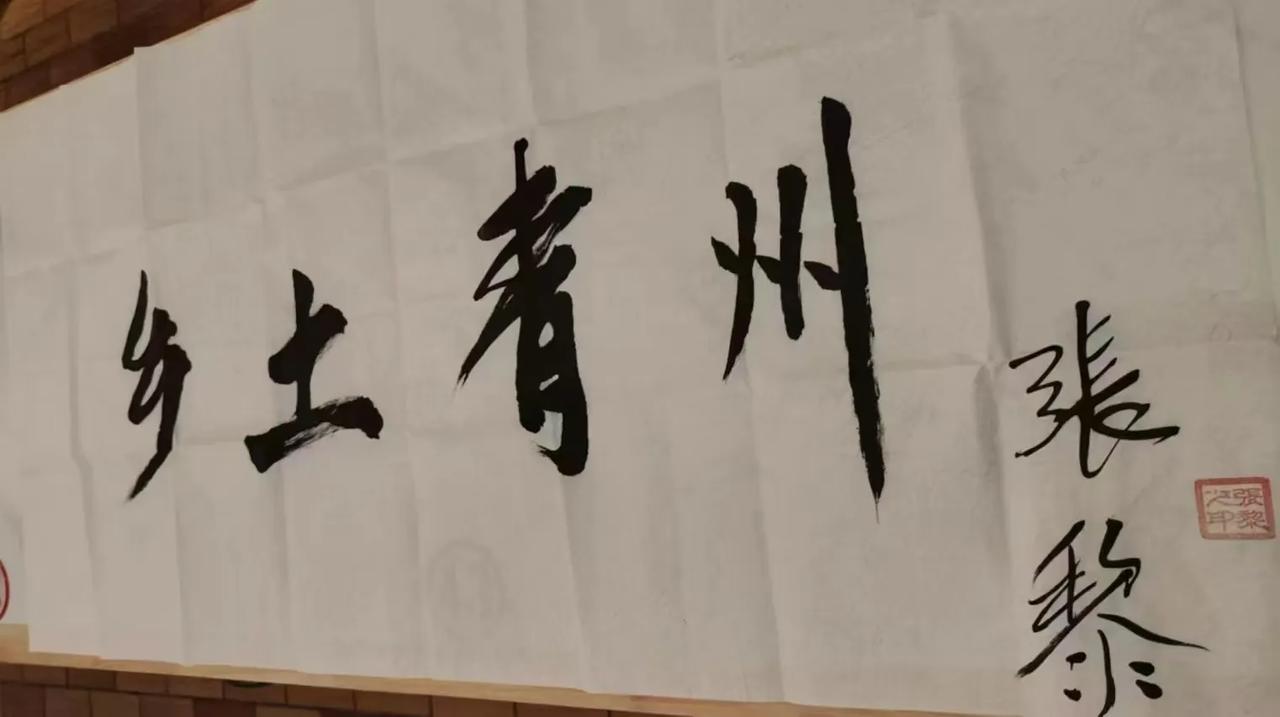 乡土青州
張黎
張黎之印